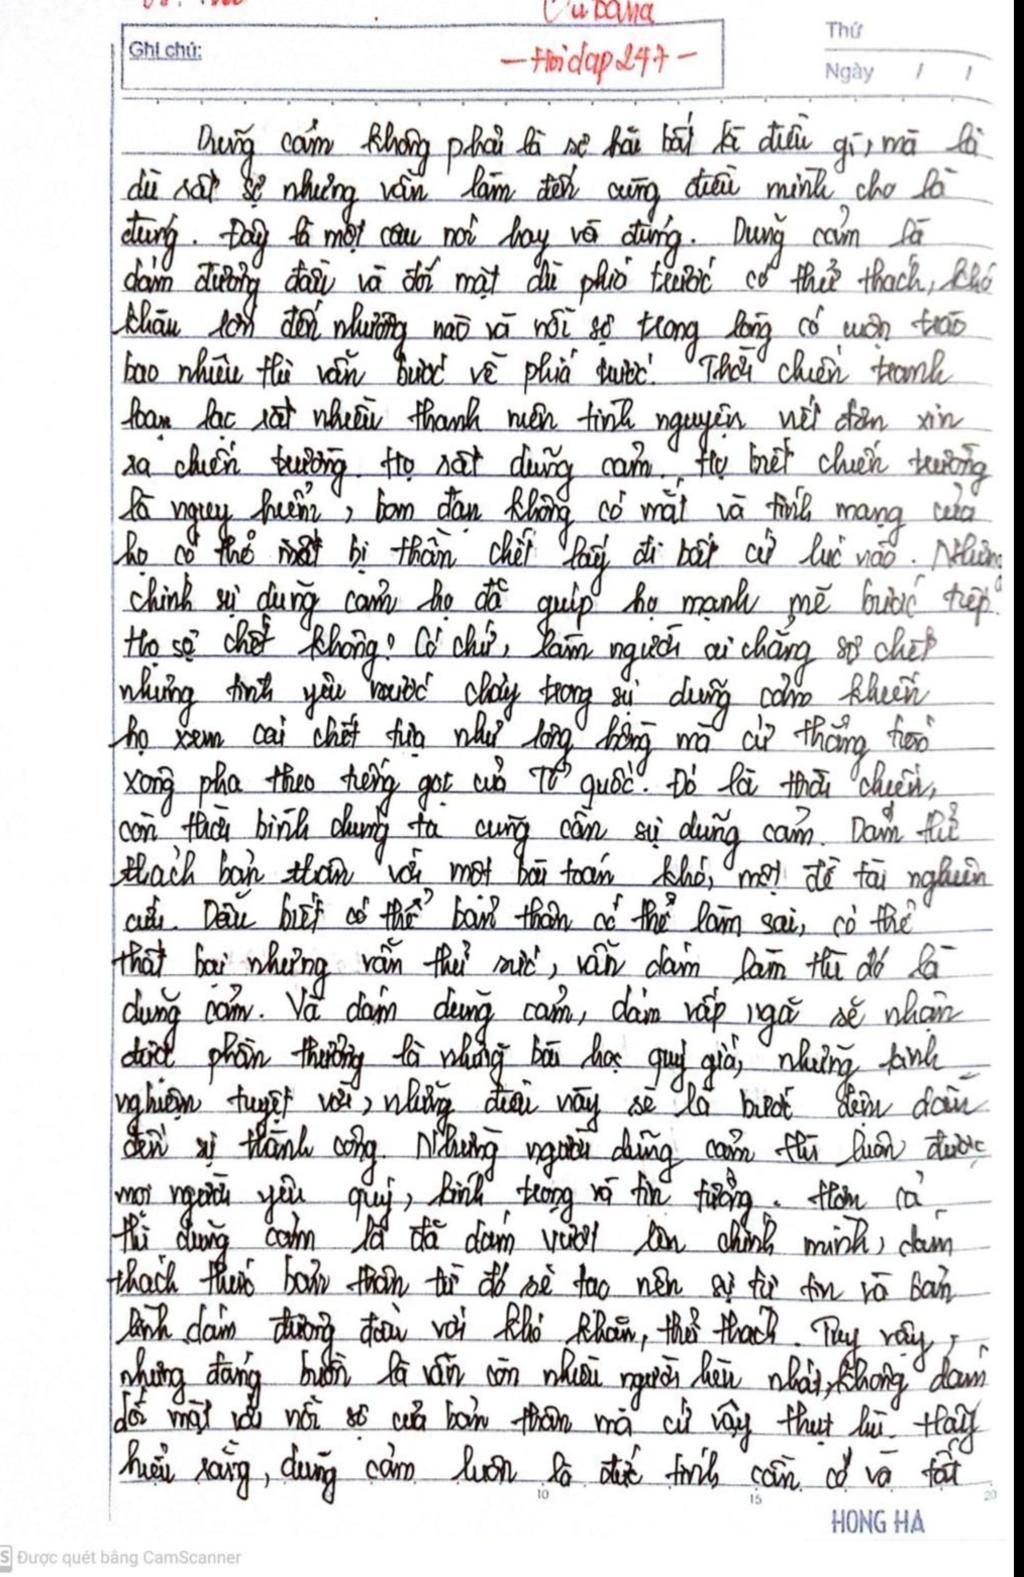 Cubana
Ghi chú:
- Hoidap247 -
Thứ
Ngày / /
Dũng cảm không phải là sợ hãi bất kì điều gì, mà là
dù rất sợ nhưng vẫn làm đến cùng điều mình cho là
đúng. Đây là một câu nói hay và đúng. Dũng cảm là
dám đương đầu và đối mặt dù phía trước có thử thách, khó
khăn lớn đến nhường nào và nỗi sợ trong lòng có cuộn trào
bao nhiêu thì vẫn bước về phía trước. Thời chiến tranh
loạn lạc rất nhiều thanh niên tình nguyện viết đơn xin
ra chiến trường. Họ rất dũng cảm. Họ biết chiến trường
là nguy hiểm, bom đạn không có mắt và tính mạng của
họ có thể bị thần chết lấy đi bất cứ lúc nào. Nhưng
chính sự dũng cảm họ đã giúp họ mạnh mẽ bước tiếp.
Họ sợ chết không? Có chứ, làm người ai chẳng sợ chết
nhưng tình yêu nước cháy trong sự dũng cảm khiến
họ xem cái chết tựa như lông hồng mà cứ thẳng tiến
xông pha theo tiếng gọi của Tổ quốc. Đó là thời chiến,
còn thời bình chung ta cũng cần sự dũng cảm. Dám thử
thách bản thân với một bài toán khó, một đề tài nghiên
cứu. Dẫu biết có thể bản thân có thể làm sai, có thể
thất bại nhưng vẫn thử sức, vẫn dám làm thì đó là
dũng cảm. Và dám dũng cảm, dám vấp ngã sẽ nhận
được phần thưởng là những bài học quý giá, những kinh
nghiệm tuyệt vời, những điều này sẽ là bước đệm dẫn
đến sự thành công. Những người dũng cảm thì luôn được
mọi người yêu quý, kính trọng và tin tưởng. Hơn cả
thì dũng cảm là đã dám vượt lên chính mình, dám
thách thức bản thân từ đó sẽ tạo nên sự tự tin và bản
lĩnh dám đương đầu với khó khăn, thử thách. Tuy vậy,
nhưng đáng buồn là vẫn còn nhiều người hèn nhát, không dám
đối mặt với nỗi sợ của bản thân mà cứ vậy thụt lùi. Hãy
hiểu rằng, dũng cảm luôn là đức tính cần có và tất
10 15 20
HONG HA
S Được quét bằng CamScanner